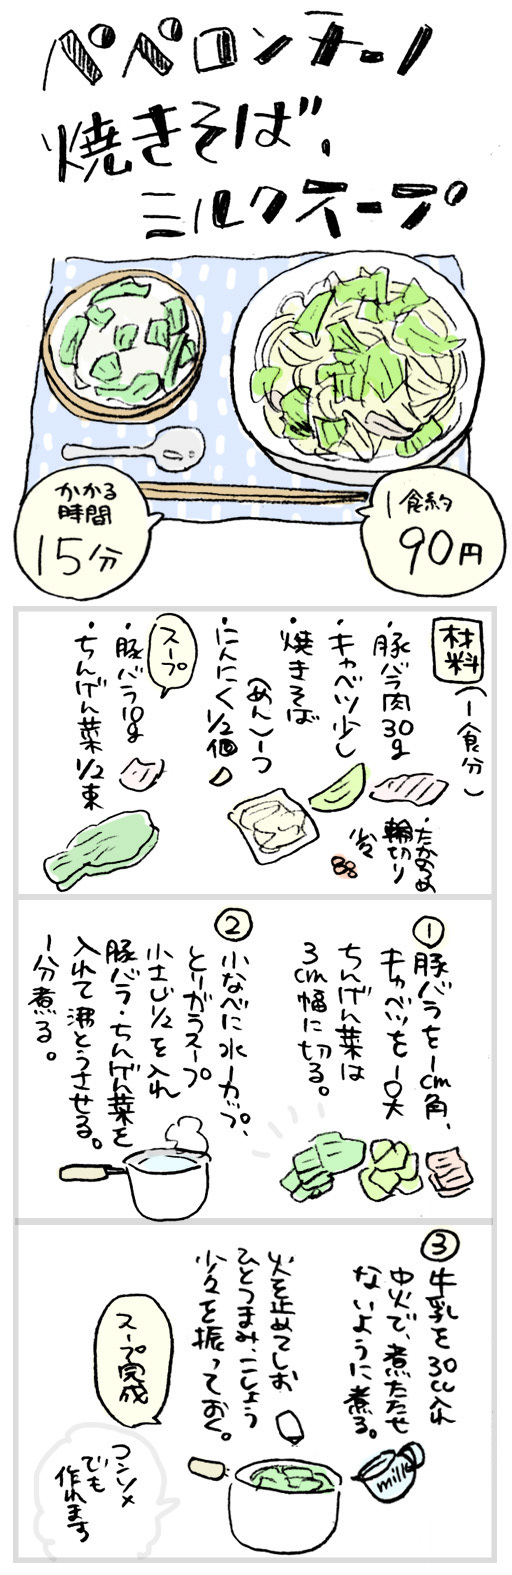 ペペロンチーノ
焼きそば、
ミルクスープ
かかる
時間
15分
1食約
90円
材料
(一食分)
・豚バラ肉30g
・キャベツ少し
・焼きそば
(めん)一つ
・にんにく1/2個
・たかのつめ
輪切り
少々
スープ
・豚バラ10g
・ちんげん菜1/2束
①
豚バラを1cm角、
キャベツを一口大
ちんげん菜は
3cm幅に切る。
②
小なべに水一カップ、
とりガラスープ
小さじ1/2を入れ
豚バラ・ちんげん菜を
入れて沸とうさせる。
1分煮る。
③
牛乳を30cc入れ
中火で、煮たたせ
ないように煮る。
火を止めてしお
ひとつまみ、こしょう
少々を振っておく。
milk
スープ完成
コンソメ
でも
作れます